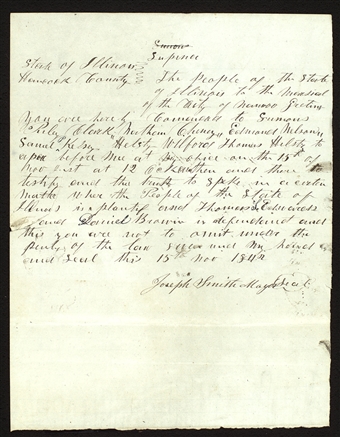 Summons
Supenee
State of Illinois
Hancock County
The People of the State
of Illinois to the Marshal
of the City of Nauvoo Greeting
You are hereby Command to Summons
Clark Nathan Cheney, Edmond Nelson
Saml Hilsby Thomas Hilsby to
apear before Me at My office on the 15th of
Nov inst at 12 then and there to
testify and the truth to Speke in a certen
matter wher the People of the State of
Illinois is plantif and Thomas Edwards
and Daniel Brown is defendand and
this you are not to omit under the
penlty of the law given under My hand
and Seal this 15th Nov 1842
Joseph Smith Mayor Seal